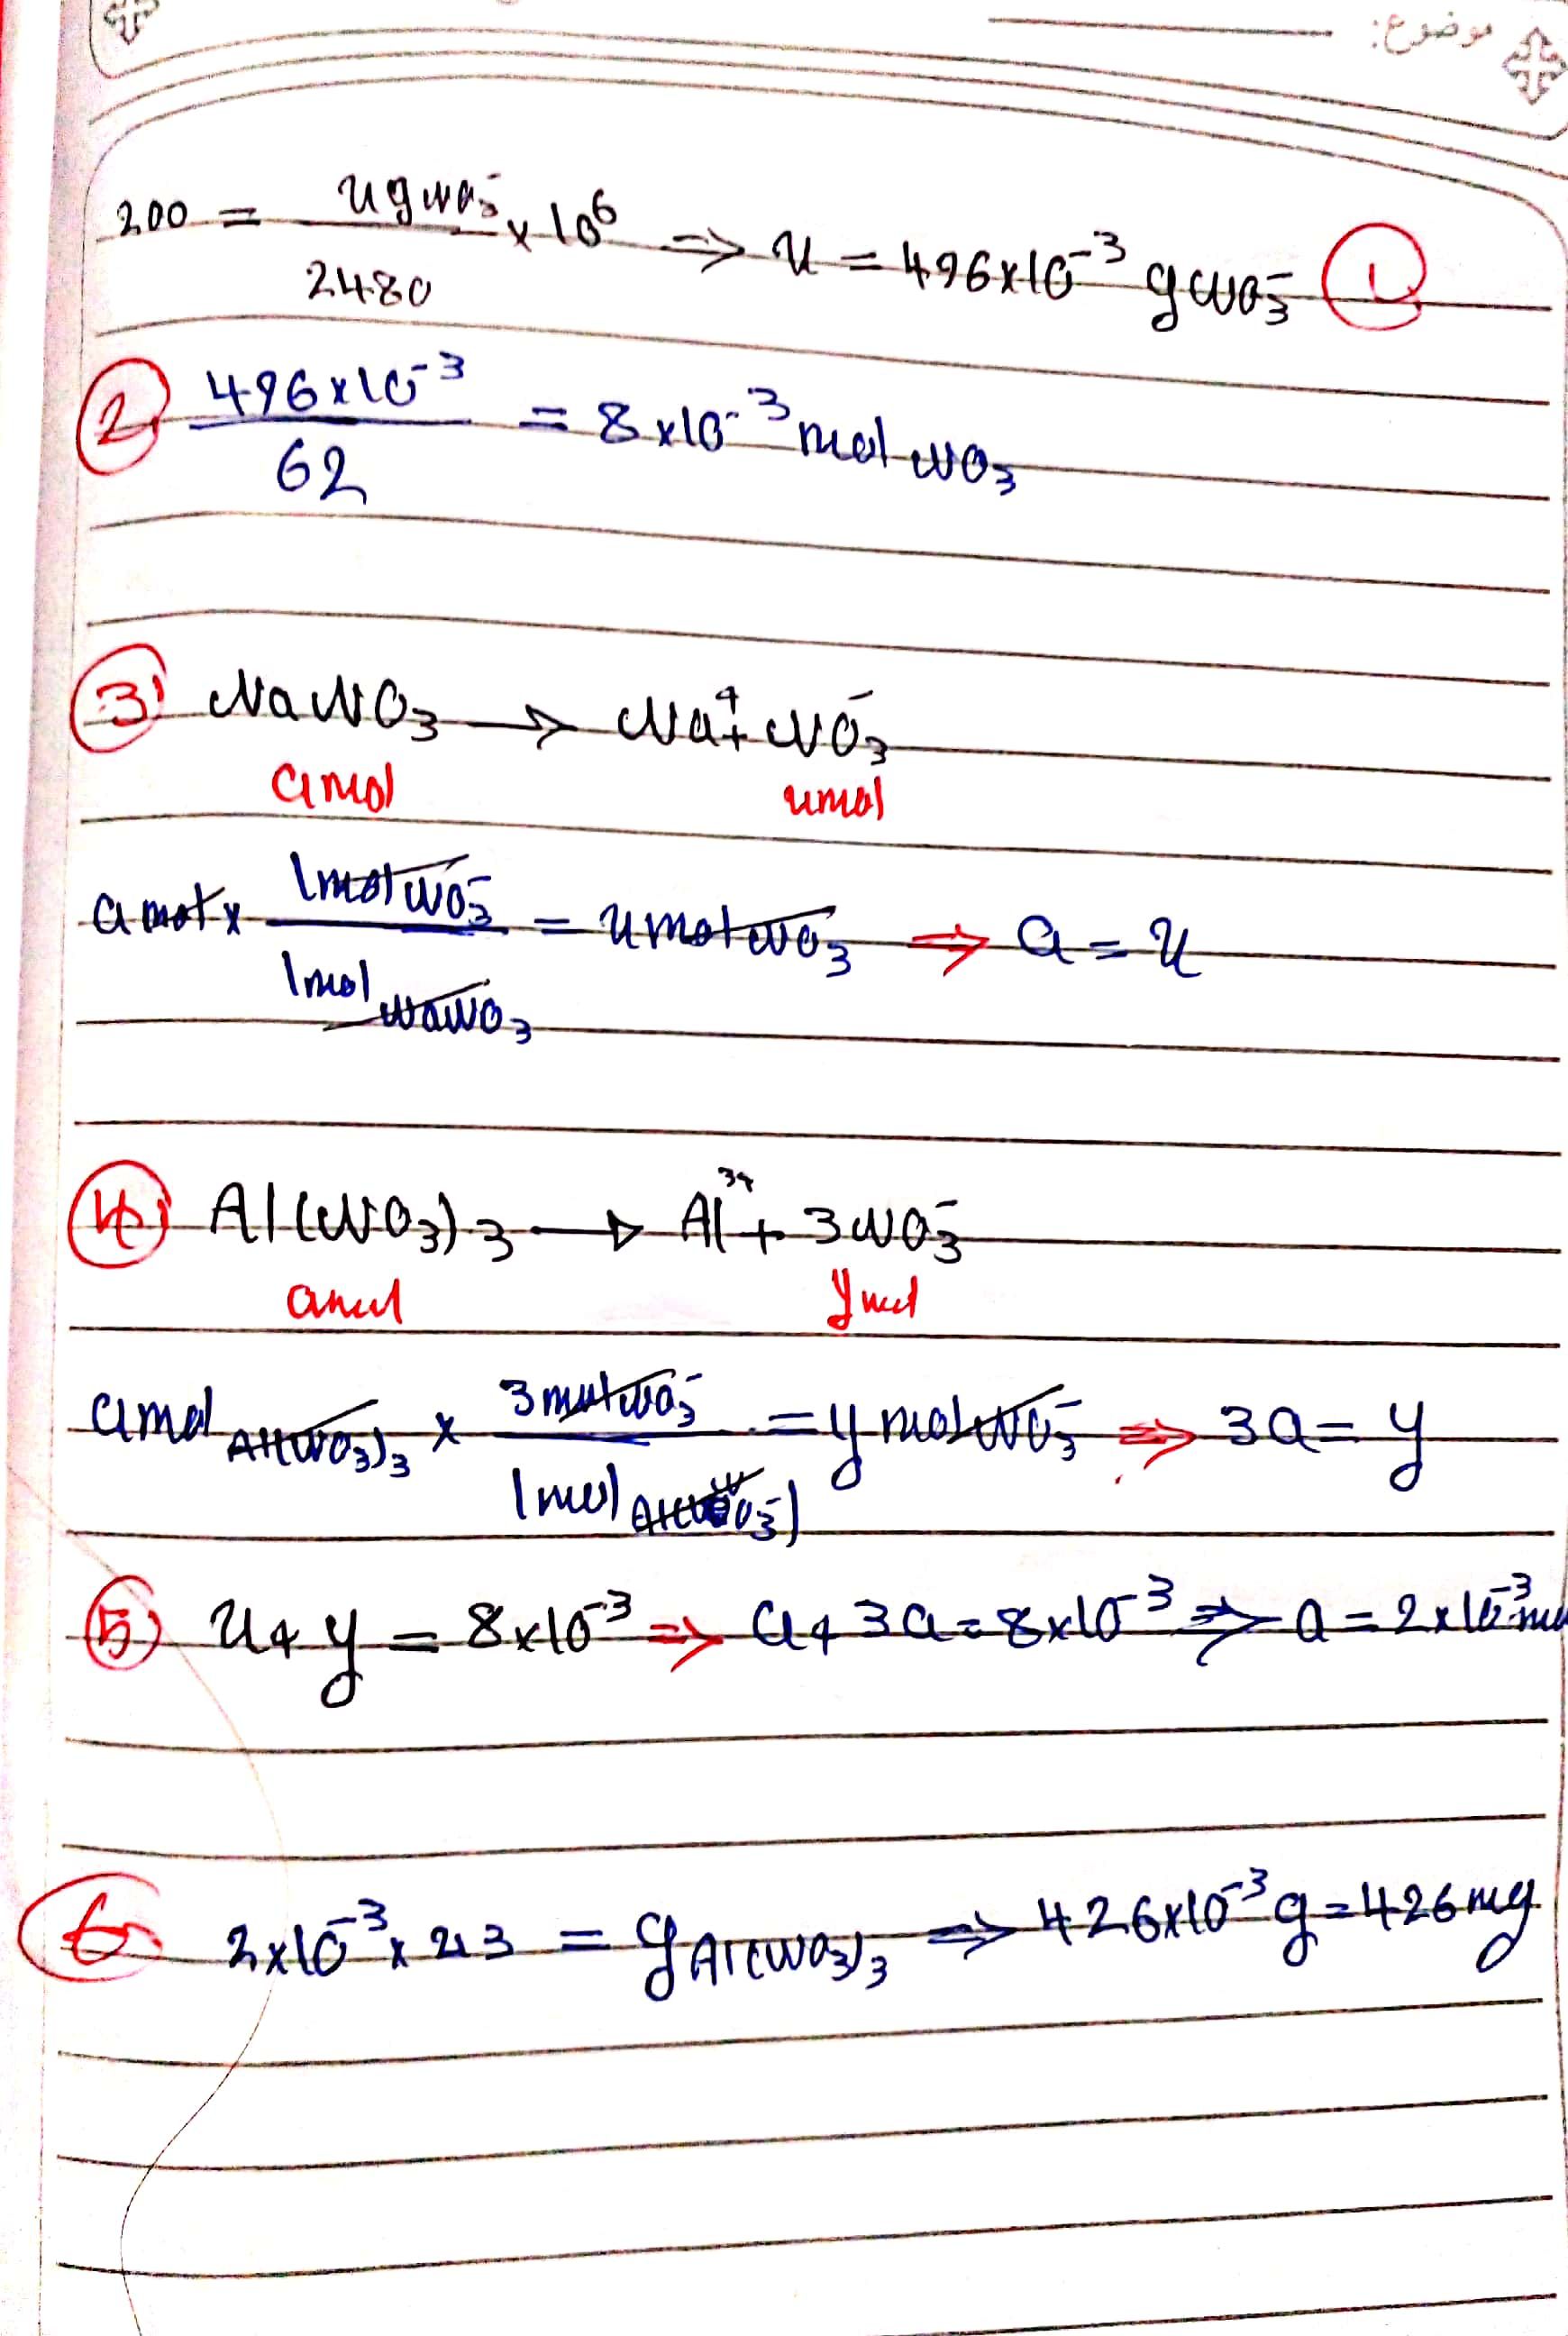 موضوع:
200 = x g NO₃⁻ / 2480 × 10⁶ ⇒ x = 496×10⁻³ g NO₃⁻ ①
② 496×10⁻³ / 62 = 8×10⁻³ mol NO₃
③ NaNO₃ → Na⁺ + NO₃⁻
a mol x mol
a mol × 1 mol NO₃⁻ / 1 mol NaNO₃ = x mol NO₃⁻ ⇒ a = x
④ Al(NO₃)₃ → Al³⁺ + 3NO₃⁻
a mol y mol
a mol Al(NO₃)₃ × 3 mol NO₃⁻ / 1 mol Al(NO₃) = y mol NO₃⁻ ⇒ 3a = y
⑤ x + y = 8×10⁻³ ⇒ a + 3a = 8×10⁻³ ⇒ a = 2×10⁻³ mol
⑥ 2×10⁻³ × 213 = g Al(NO₃)₃ ⇒ 426×10⁻³ g = 426 mg